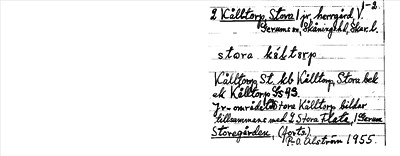 2 Kålltorp, Stora 1 jr, herrgård, V. 1-2.
Gerums sn, Skånings hd, Skar. l.
stora kóltorp
Kålltorp St. kb Kålltorp, Stora bel
ek Kålltorp Gs 93.
Jr-området Stora Kålltorp bildar
tillsammans med 2 Stora Flata, 1 Gerum
Storegården, (forts.)
R.O. Alström 1955.